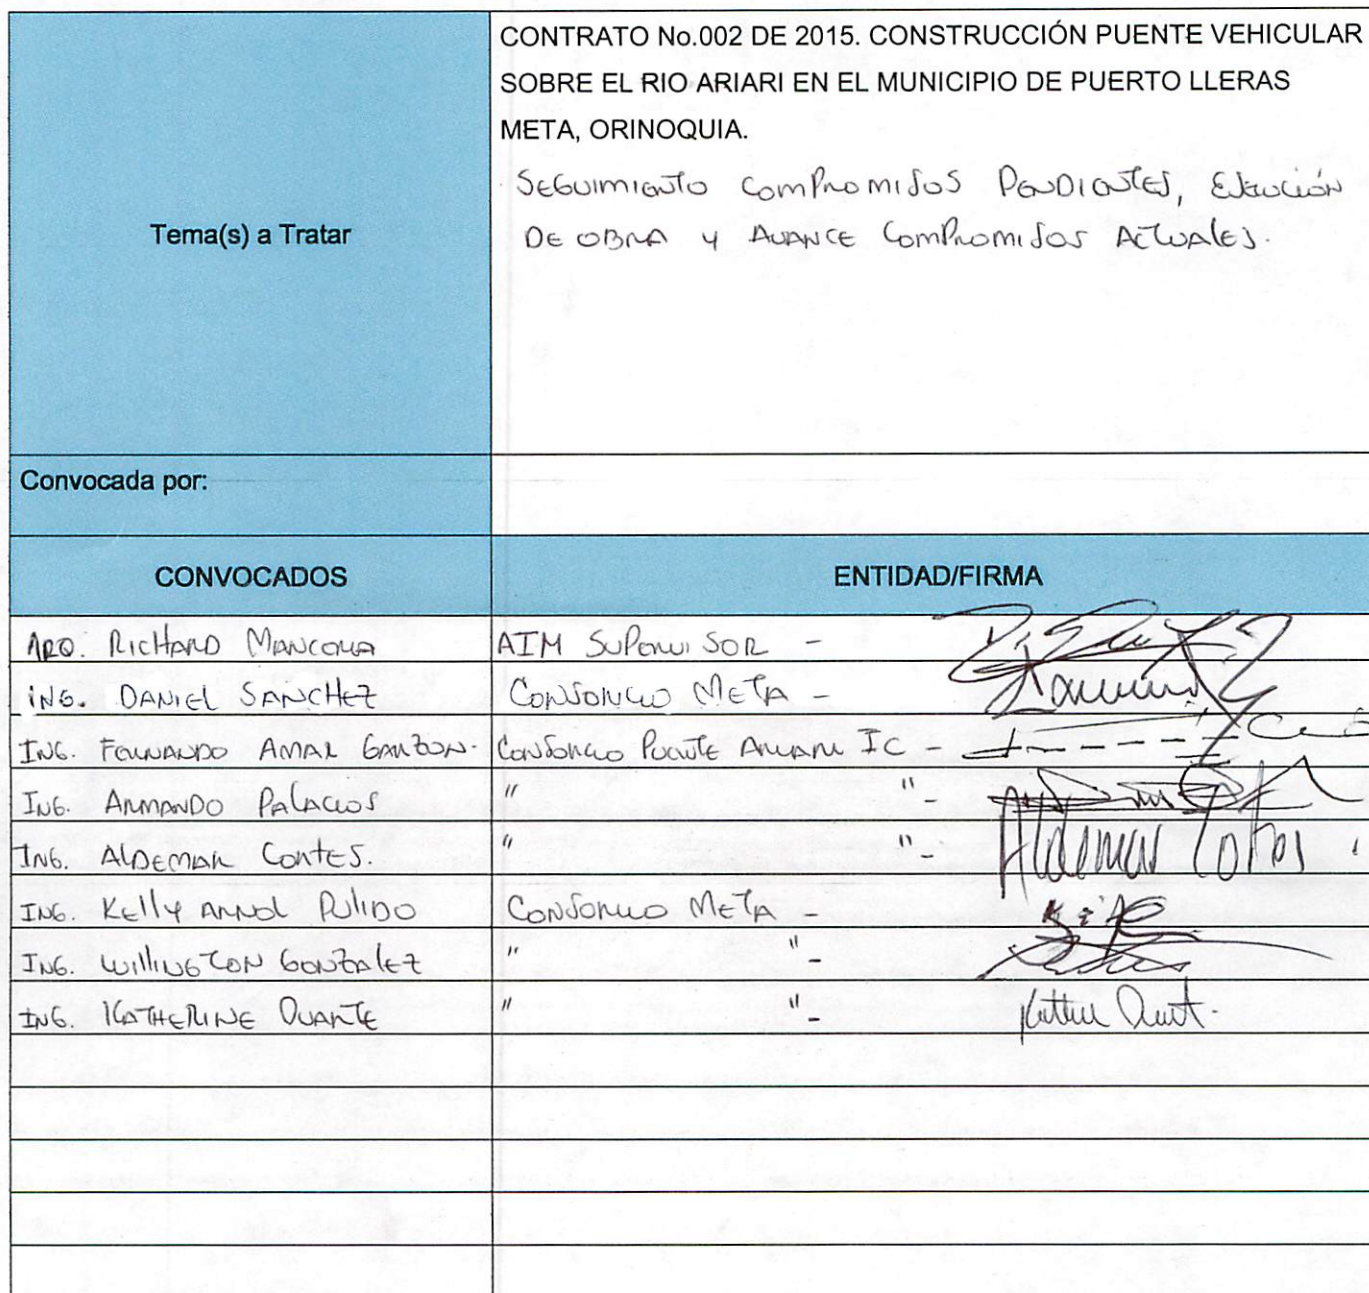 CONTRATO No.002 DE 2015. CONSTRUCCIÓN PUENTE VEHICULAR
SOBRE EL RIO ARIARI EN EL MUNICIPIO DE PUERTO LLERAS
META, ORINOQUIA.
Tema(s) a Tratar
SEGUIMIENTO COMPROMISOS PENDIENTES, EJECUCIÓN
DE OBRA Y AVANCE COMPROMISOS ACTUALES.
Convocada por:
CONVOCADOS ENTIDAD/FIRMA
ARQ. RICHARD AIM SUPERVISOR -
ING. DANIEL SANCHEZ CONSORCIO META -
ING. FERNANDO AMAR GARZON. CONSORCIO PUENTE ARIARI IC -
ING. ARMANDO PALACIOS " " -
ING. ALDEMAR CORTES. " " - Aldemar Cortes
ING. KELLY PULIDO CONSORCIO META -
ING. WILLINGTON GONZALEZ " " -
ING. KATHERINE DUARTE " " -